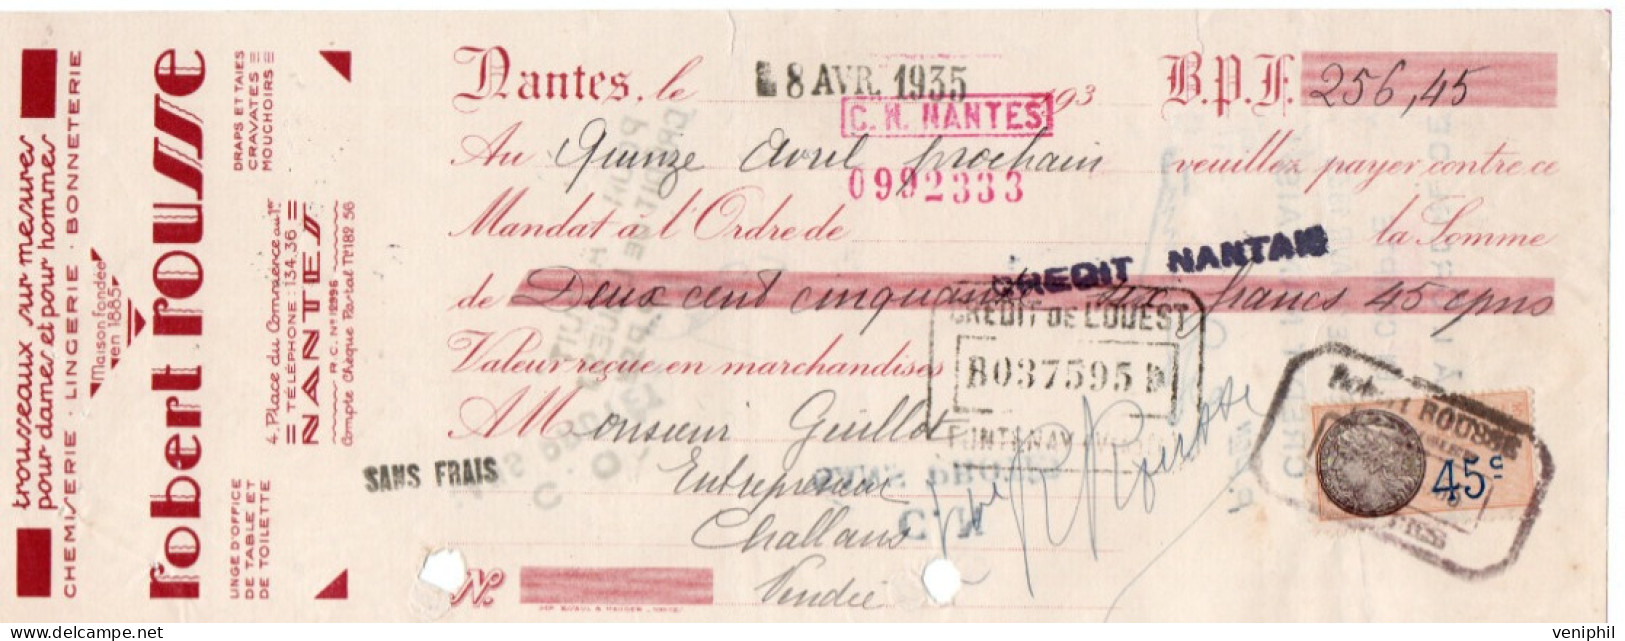 trousseaux sur mesures
pour dames et pour hommes
CHEMISERIE · LINGERIE · BONNETERIE
Maison fondée
en 1885
robert rousse
DRAPS ET TAIES
CRAVATES
MOUCHOIRS
LINGE D'OFFICE
DE TABLE ET
DE TOILETTE
4, Place du Commerce au 1er
TÉLÉPHONE : 134.36
NANTES
R.C. No 12996
Compte Chèque Postal No 182 56
Nantes, le 8 AVR. 1935 193 B.P.F. 256,45
C. N. NANTES
Au Quinze Avril prochain veuillez payer contre ce
0992333
Mandat à l'Ordre de la Somme
CREDIT NANTAIS
de Deux cent cinquante six francs 45 cms
CREDIT DE L'OUEST
Valeur reçue en marchandises
B037595
A M onsieur Guillot
FONTENAY
SANS FRAIS
Entrepreneur
Challans
Vendée
No
ROUSSE
45c
veniphil